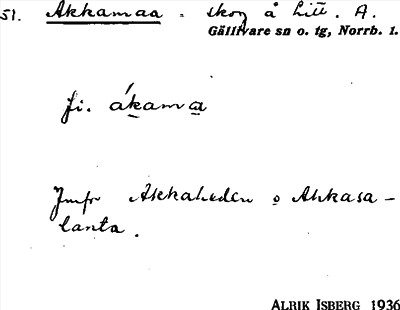 51. Akkamaa = skog å Litt. A.
Gällivare sn o. tg, Norrb. 1.
fi. ákama̲a̲
Jmfr Akkaheden o Ahkasa-
lanta.
ALRIK ISBERG 1936